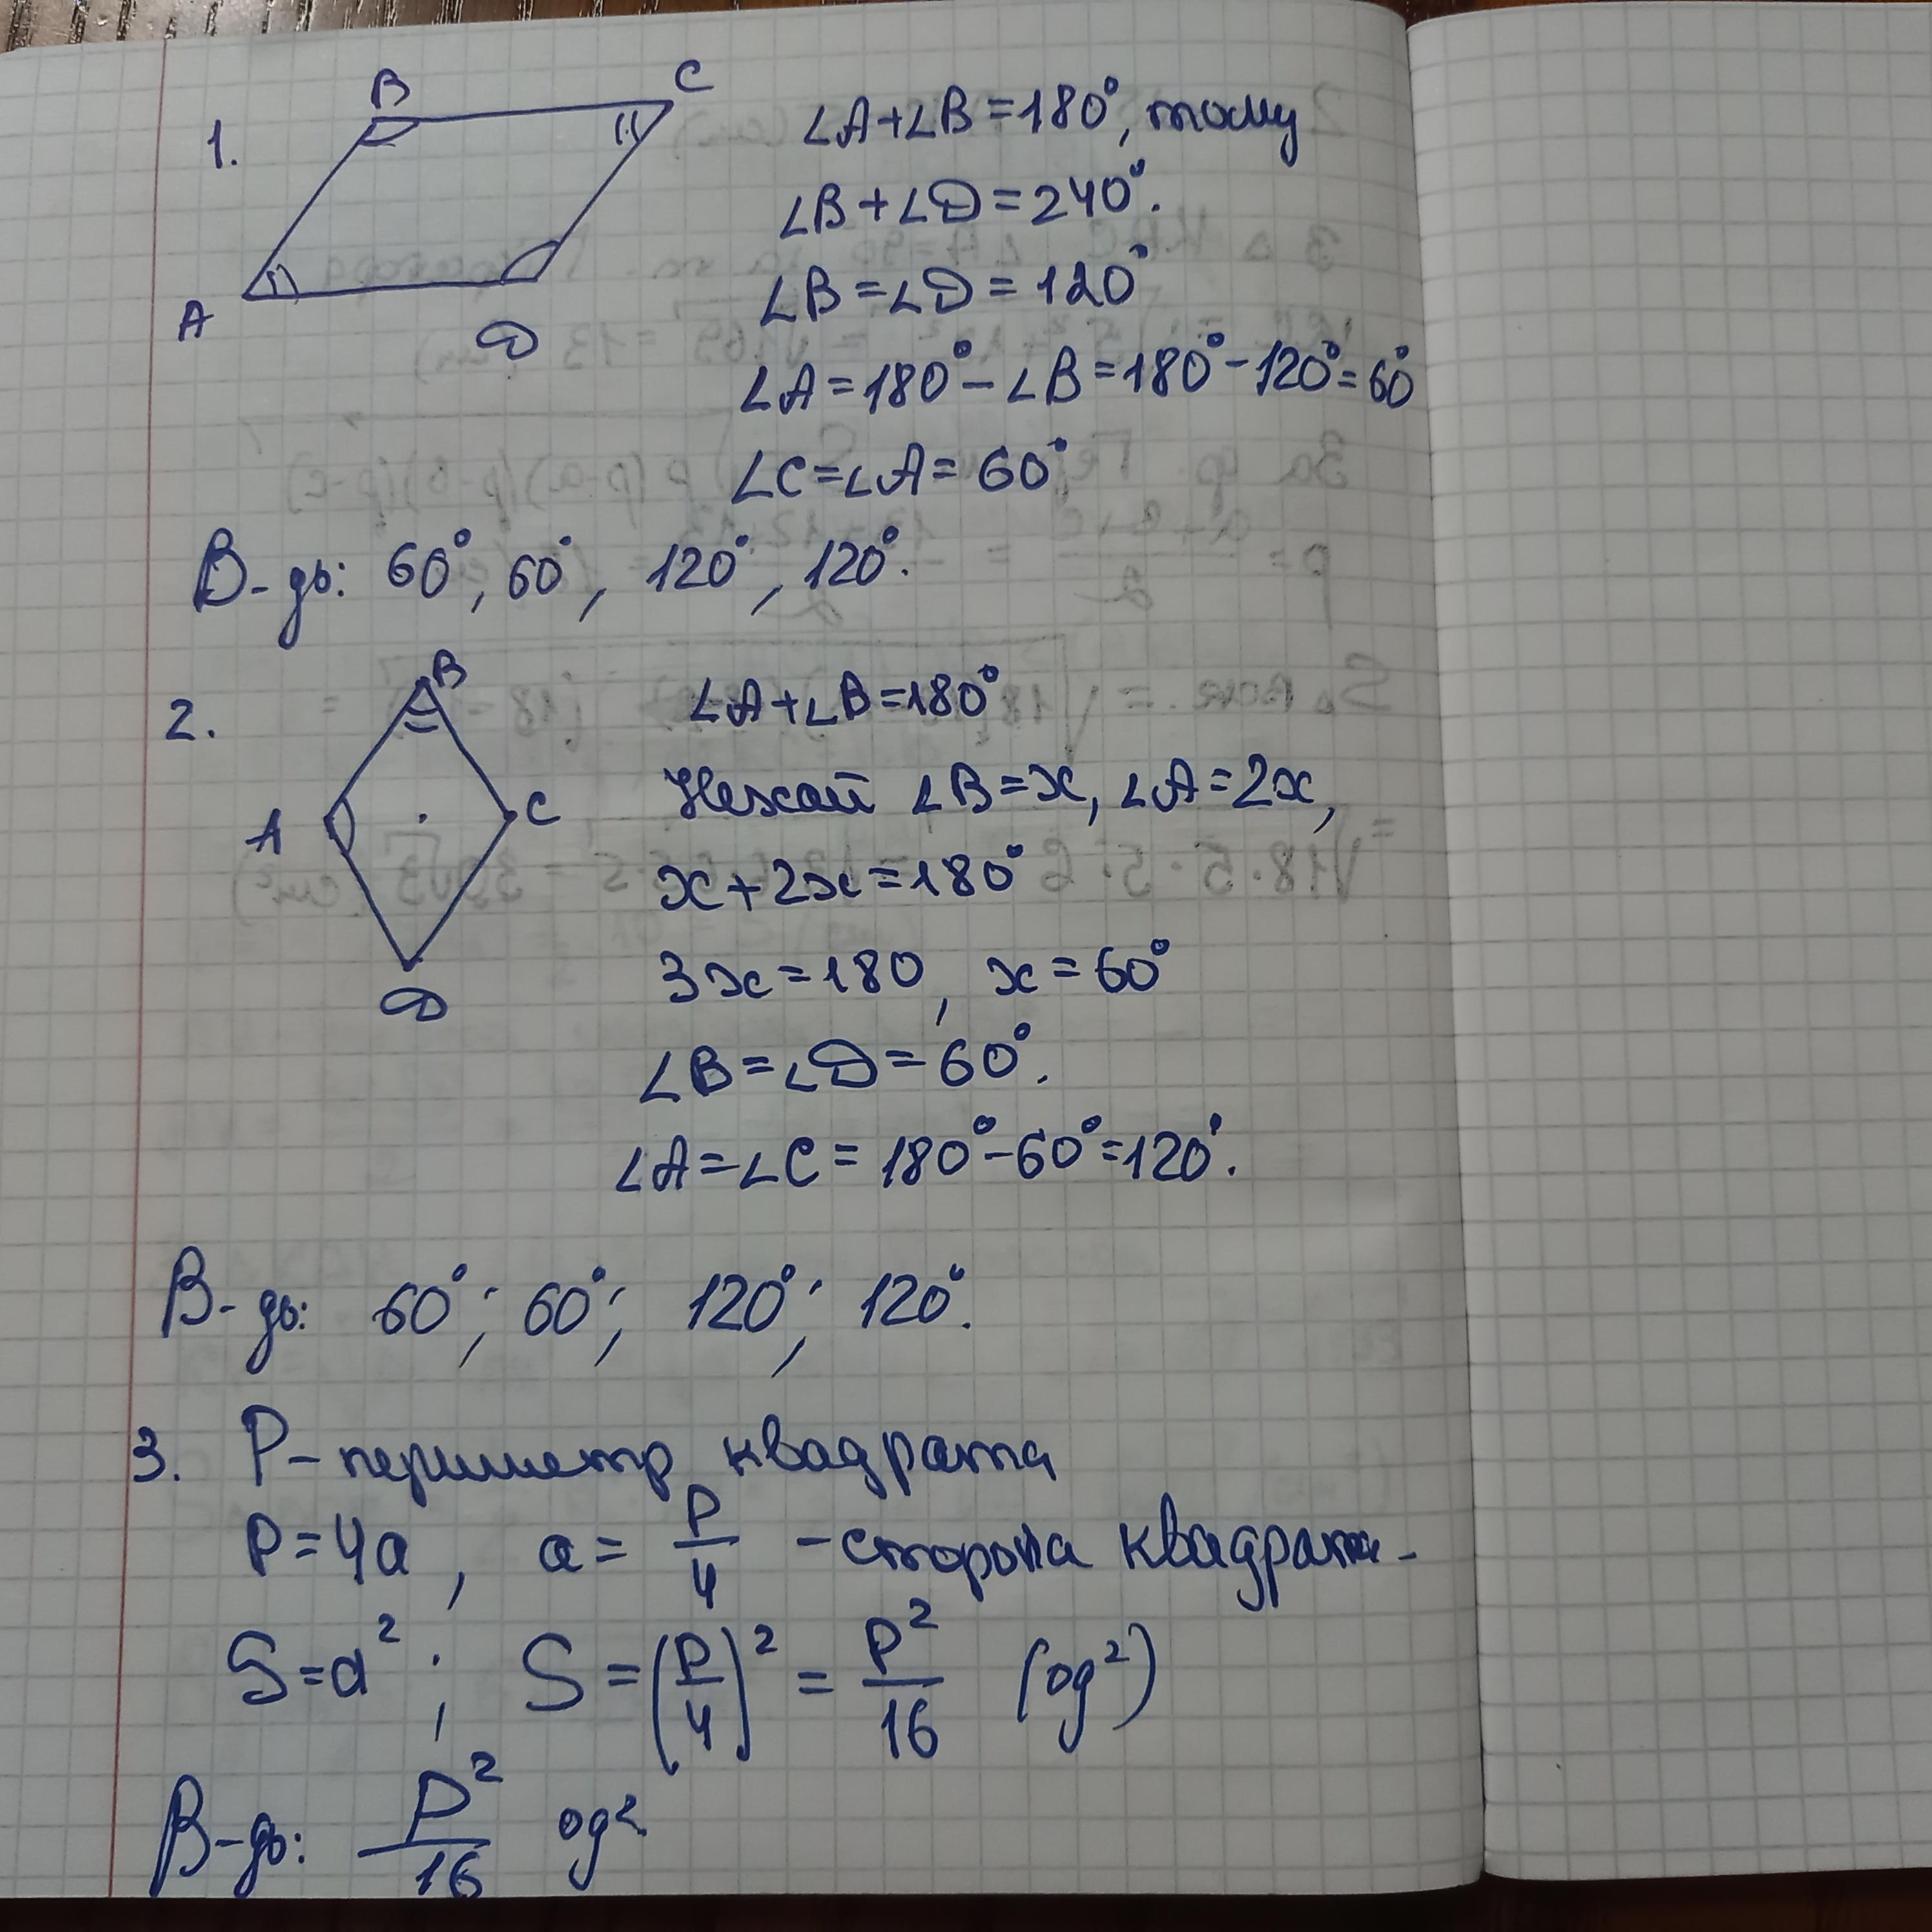 1.
B
C
A
D
∠A+∠B=180°, тому
∠B+∠D=240°.
∠B=∠D=120°
∠A=180°-∠B=180°-120°=60°
∠C=∠A=60°
В-дь: 60°, 60°, 120°, 120°.
2.
B
A
C
D
∠A+∠B=180°
Нехай ∠B=x, ∠A=2x,
x+2x=180°
3x=180, x=60°
∠B=∠D=60°.
∠A=∠C=180°-60°=120°.
В-дь: 60°; 60°; 120°; 120°.
3. P-периметр квадрата
P=4a, a=P/4 -сторона квадрата-
S=a²; S=(P/4)²=P²/16 (од²)
В-дь: P²/16 од².